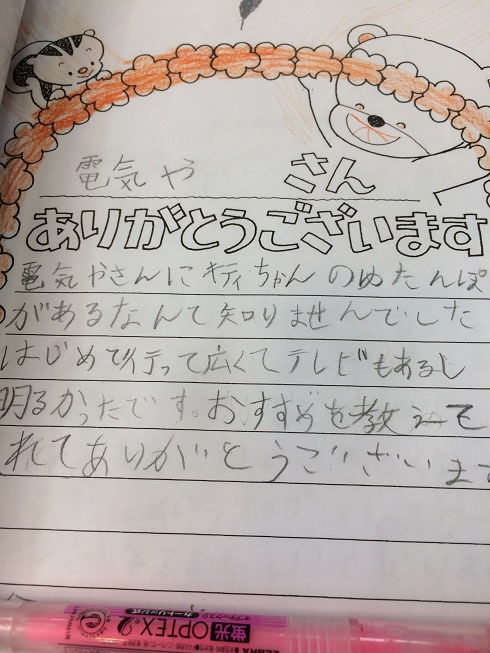 電気や さん
ありがとうございます
電気やさんにキティちゃんのゆたんぽ
があるなんて知りませんでした
はじめて行って広くてテレビもあるし
明るかったです。おすすめを教えて
れてありがとうございます
蛍光 OPTEX 2
カートリッジ式
ZEBRA